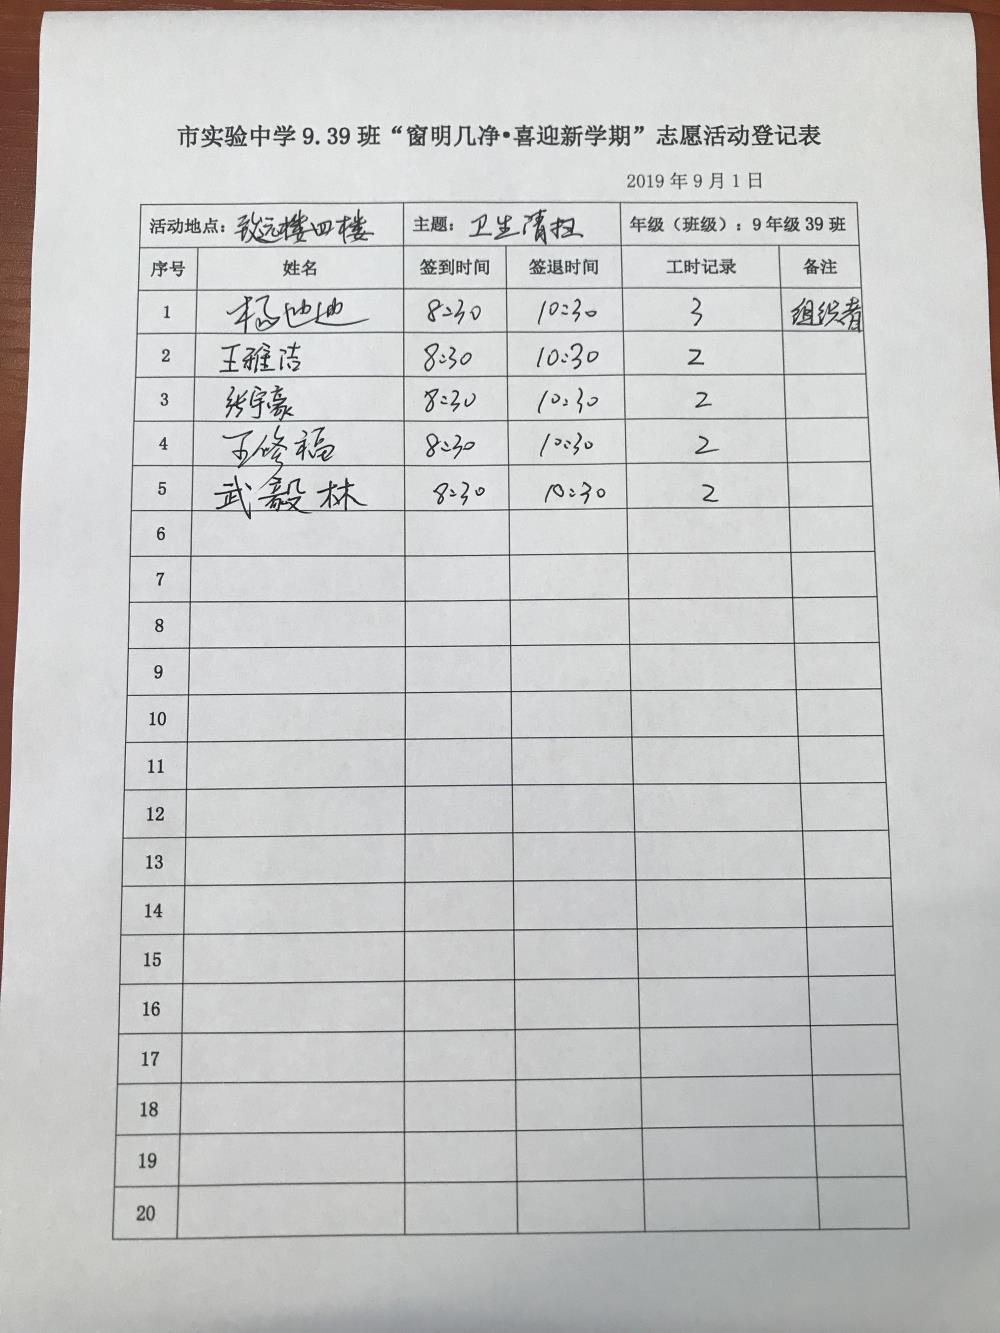 市实验中学9.39班“窗明几净•喜迎新学期”志愿活动登记表
2019年9月1日
活动地点：致远楼四楼 主题：卫生清扫 年级（班级）：9年级39班
序号 姓名 签到时间 签退时间 工时记录 备注
1 杨地地 8:30 10:30 3 组织者
2 王雅洁 8:30 10:30 2
3 张宇豪 8:30 10:30 2
4 王修福 8:30 10:30 2
5 武毅林 8:30 10:30 2
6
7
8
9
10
11
12
13
14
15
16
17
18
19
20